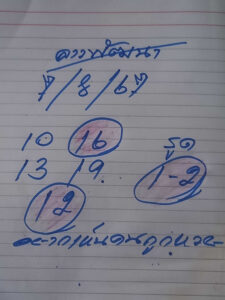 ลาวพัฒนา
7/8/67
10 16 รูด
13 19 1-2
12
อยากเห็นคนถูกหวย